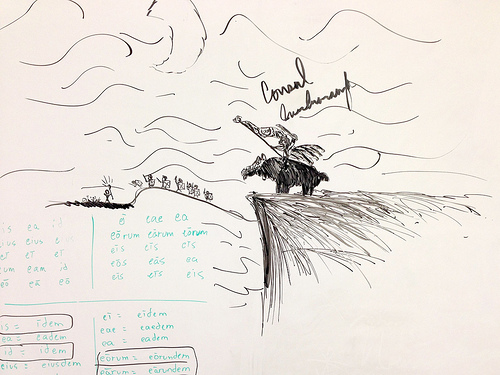 Consul
is ea id
ius eius
eī eī eī
um eam id
eō eā eō
eī eae ea
eōrum eārum eōrum
eīs eīs eīs
eōs eās ea
eīs eīs eīs
is = īdem
ea = eadem
id = idem
eius = eiusdem
eī = eīdem
eae = eaedem
ea = eadem
eōrum = eōrundem
eārum = eārundem